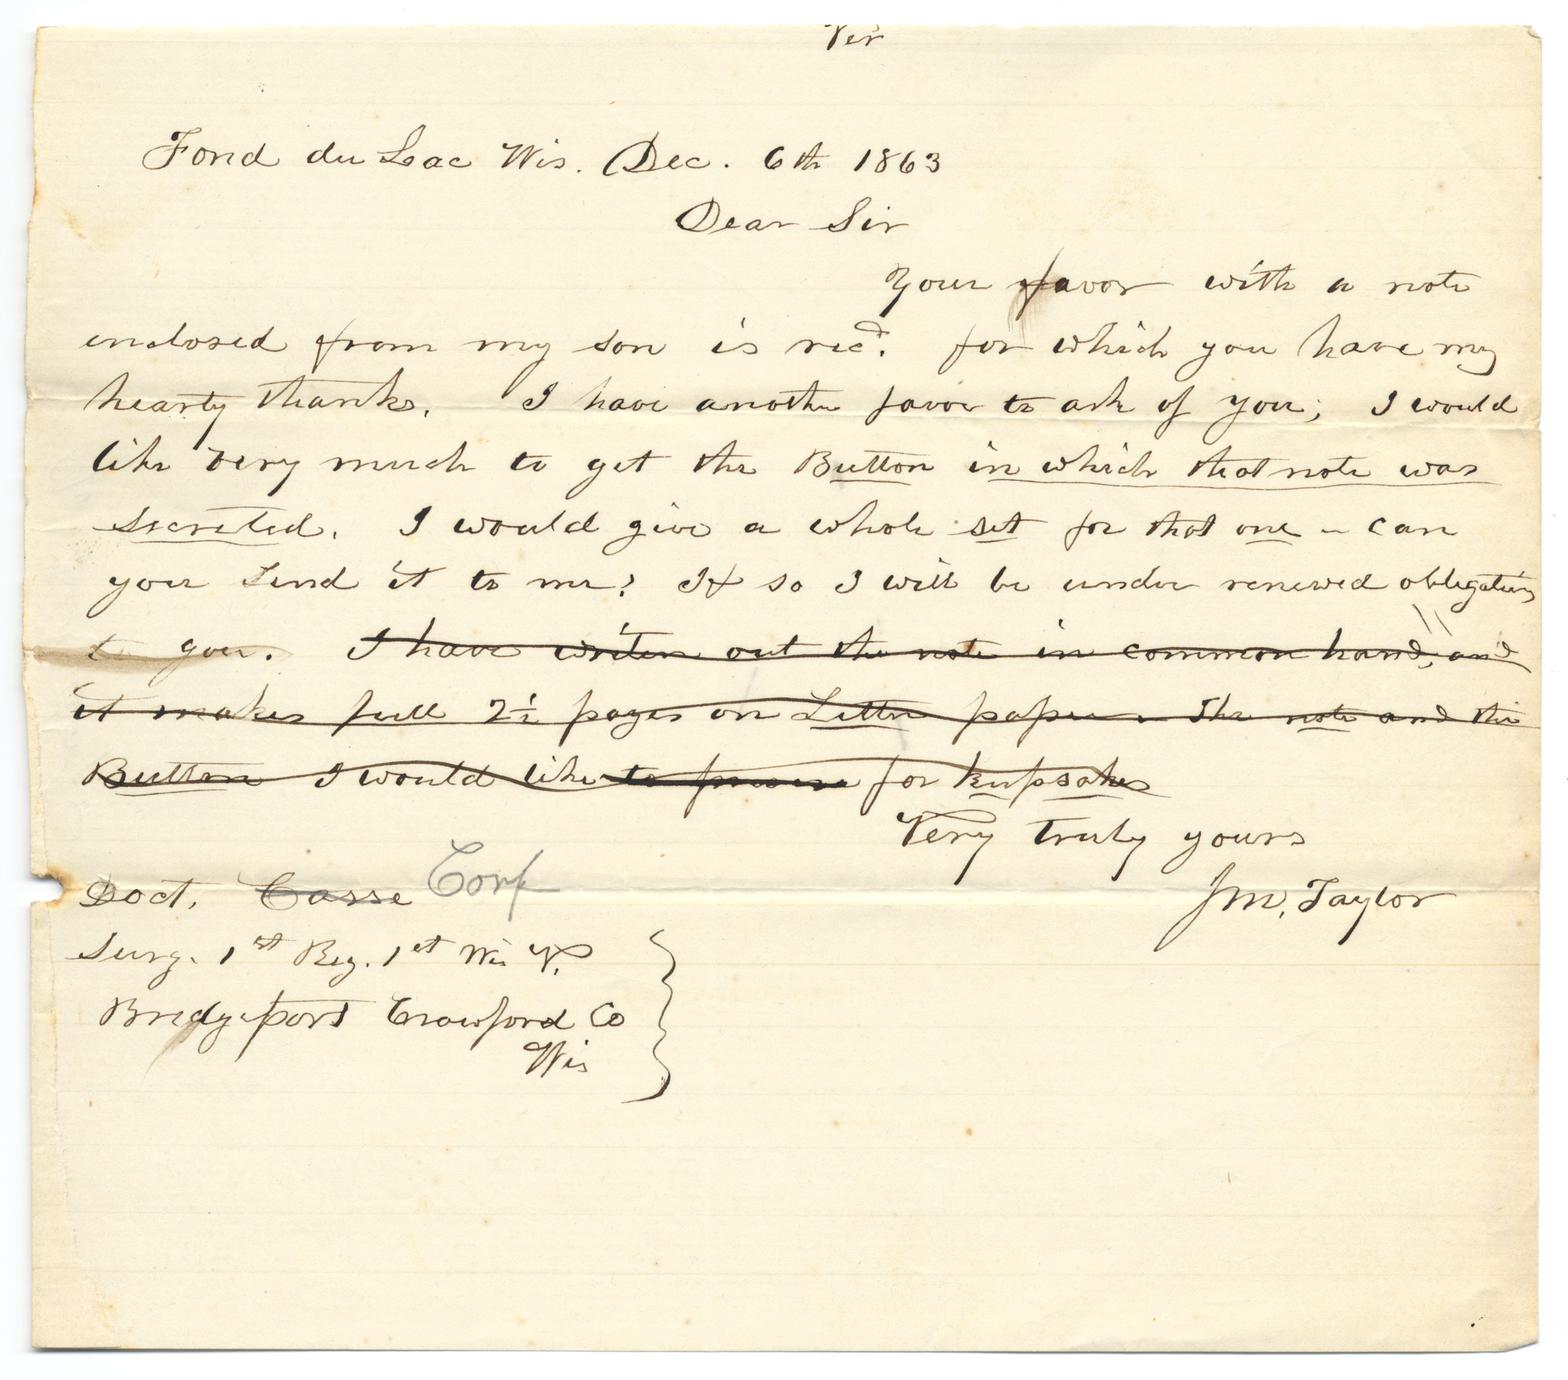 Ver
Fond du Lac Wis. Dec. 6th 1863
Dear Sir
Your favor with a note
enclosed from my son is recd. for which you have my
hearty thanks. I have another favor to ask of you; I would
like very much to get the Button in which that note was
secreted. I would give a whole set for that one – can
you send it to me? If so I will be under renewed obligations
to you. I have writen out the note in common hand, and
it makes full 2½ pages on Letter paper. The note and the
Button I would like to for kupsakes
Very truly yours
J M. Taylor
Doct. Casse Corf
Surg. 1st Reg. 1st Wis V.
Bridgeport Crawford Co
Wis